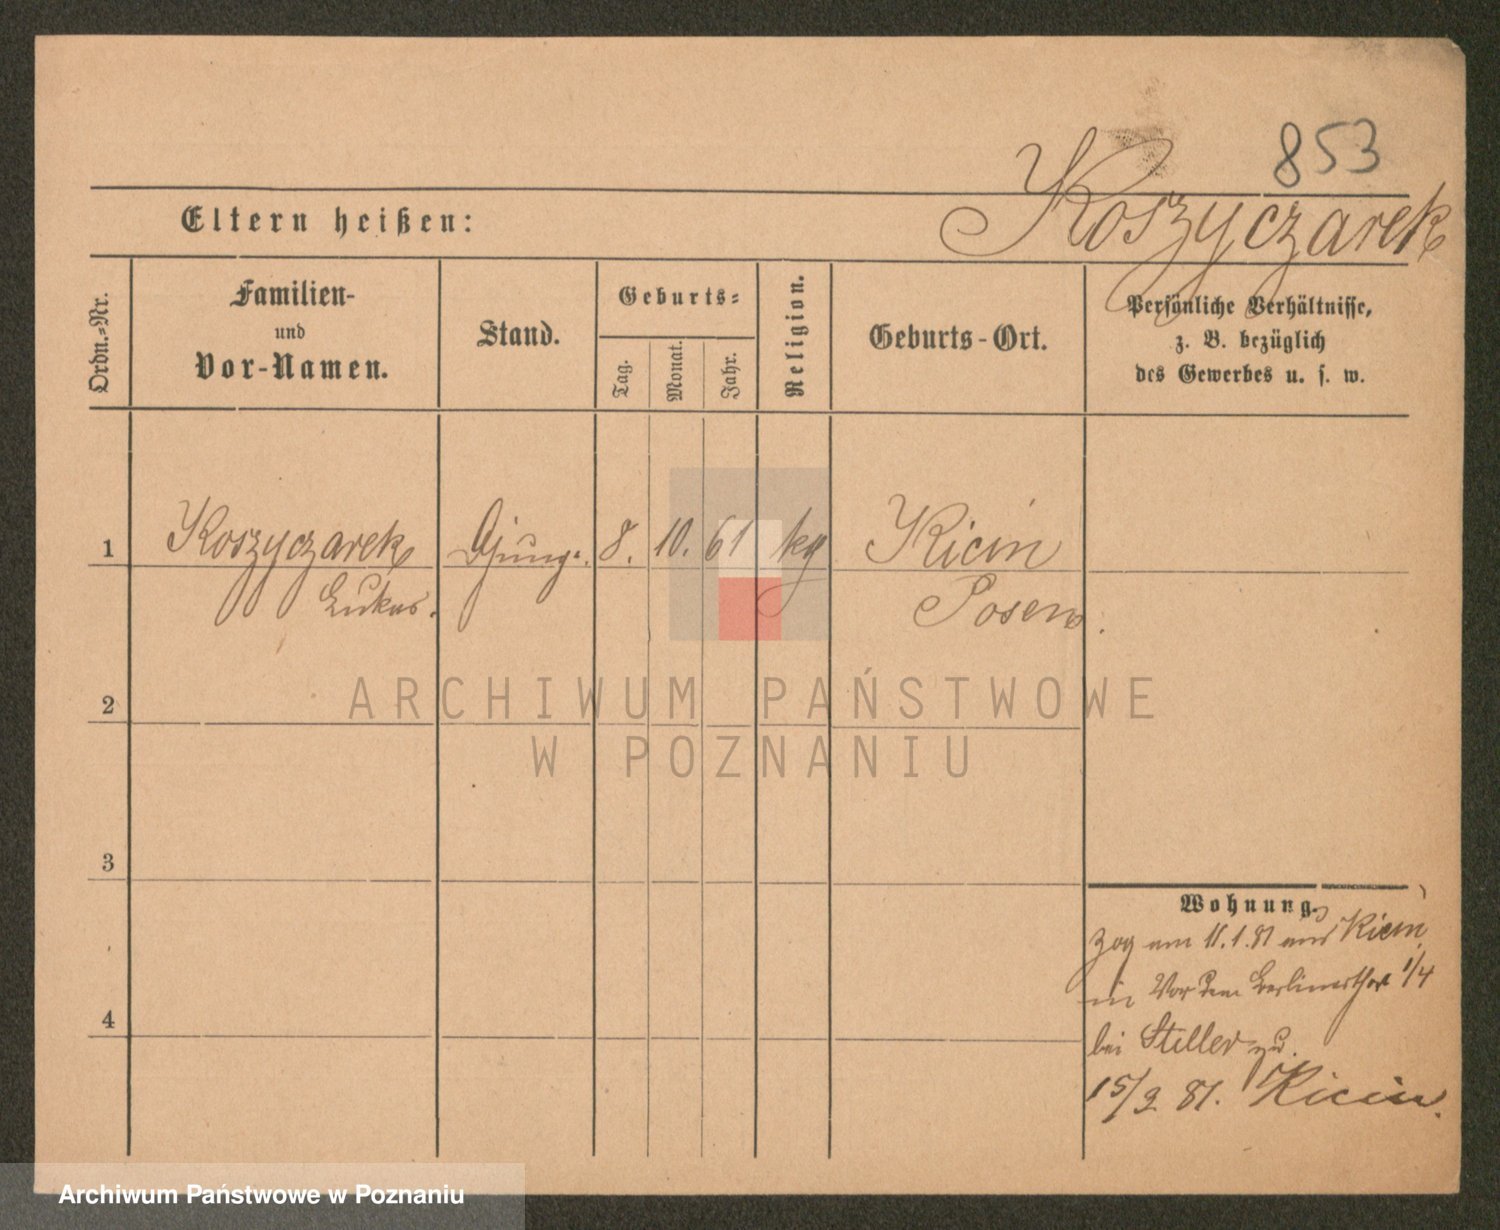 853
Koszyczarek
Eltern heißen:
Ordn.-Nr.
Familien-
und
Vor-Namen.
Stand.
Geburts-
Tag.
Monat.
Jahr.
Religion.
Geburts-Ort.
Persönliche Verhältnisse,
z. B. bezüglich
des Gewerbes u. s. w.
1 Koszyczarek 8. 10. 61 Kicin
Lukas. Posen.
2
3
4
Wohnung.
Zog am 11.1.81 aus Kicin
in Vor dem Berlinerthor 1/4
bei Stiller zu.
15/2 81. Kicin.
ARCHIWUM PAŃSTWOWE
W POZNANIU
Archiwum Państwowe w Poznaniu